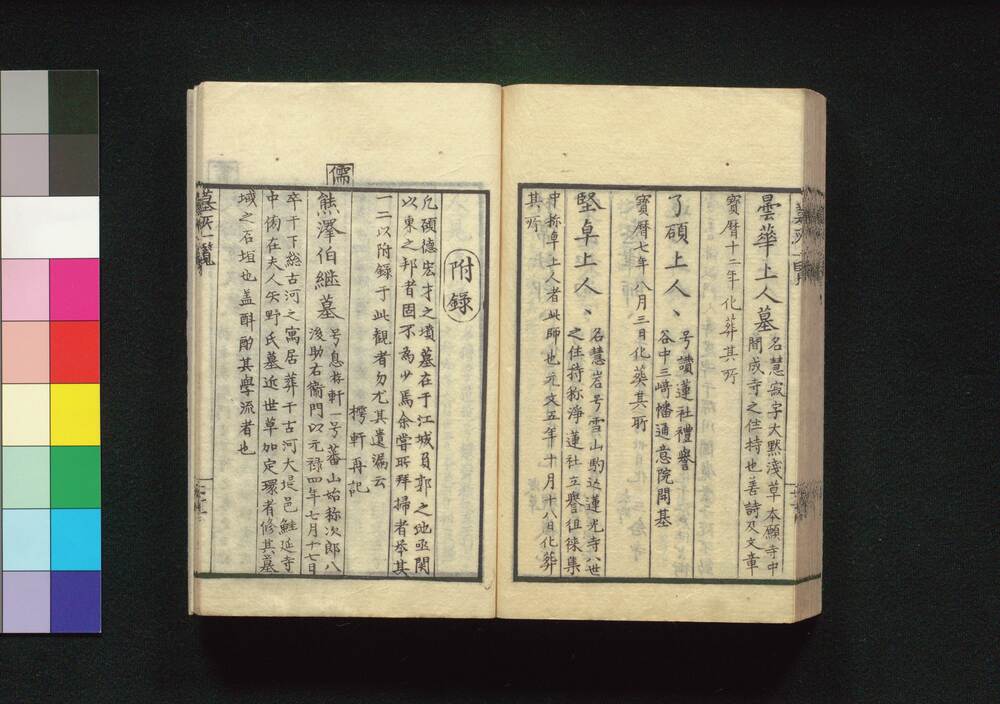 曇華上人墓
名慧寂字大黙淺草本願寺中
聞成寺之住持也善詩及文章
寳暦十二年化葬其所
了碩上人、
号讃蓮社禮譽
谷中三﨑幡通意院開基
寳暦七年八月三日化葬其所
堅卓上人、
名慧岩号雪山駒込蓮光寺八世
之住持称淨蓮社立譽徂徠集
中称卓上人者此師也元文五年十月十八日化葬
其所
附録
凢碩德宏才之墳墓在于江城負郭之地亟関
以東之邦者固不為少焉余嘗所拜掃者举其
一二以附録于此観者勿尤其遺漏云
樗軒再記
儒
熊澤伯継墓
号息游軒一号蕃山始称次郎八
後助右衞門以元禄四年七月十七日
卒于下総古河之寓居葬于古河大堤邑鮭延寺
中傍在夫人矢野氏墓近世草加定環者修其墓
域之石垣也盖酙酌其學流者也
墓所一覧